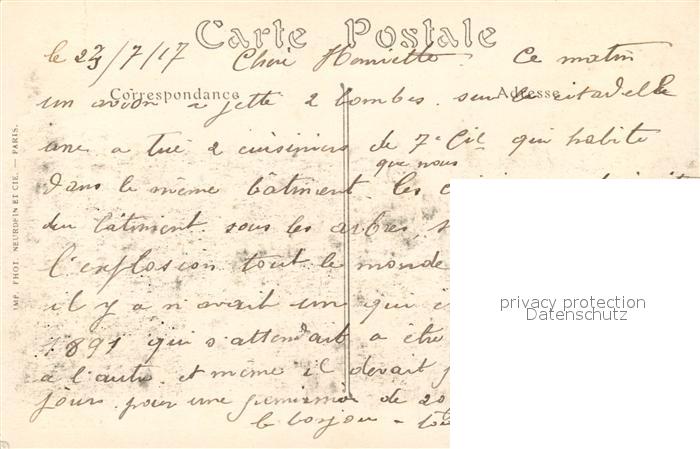 Carte Postale
le 23/7/17 Chère Henriette Ce matin
Correspondance Adresse
un avion a jetté 2 bombes sur la citadelle
une a tué 2 cuisiniers de 7e Cie qui habite
que nous
dans le même bâtiment. les
du bâtiment sous les arbres,
l'explosion tout le monde
il y a n avait un qui
1891 qui s'attendait a être
a l'autre et même il devait
jours pour une permission de 20
le bonjou
IMP. PHOT. NEURDEIN ET CIE. — PARIS.
privacy protection
Datenschutz